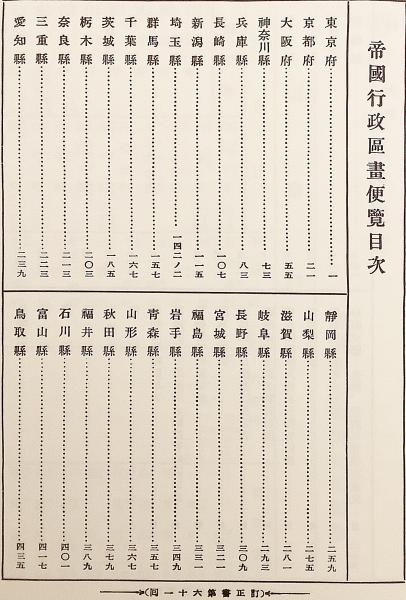 帝國行政區畫便覽目次
東京府……一
京都府……二一
大阪府……五五
神奈川縣……七三
兵庫縣……八三
長崎縣……一〇七
新潟縣……一一五
埼玉縣……一四二ノ二
群馬縣……一五七
千葉縣……一六七
茨城縣……一八五
栃木縣……二〇三
奈良縣……二一三
三重縣……二二三
愛知縣……二三九
靜岡縣……二五九
山梨縣……二七五
滋賀縣……二八一
岐阜縣……二九三
長野縣……三〇九
宮城縣……三二一
福島縣……三三一
岩手縣……三四九
靑森縣……三五七
山形縣……三六七
秋田縣……三七九
福井縣……三八九
石川縣……四〇一
富山縣……四一七
鳥取縣……四三五
(訂正書第六十一回)